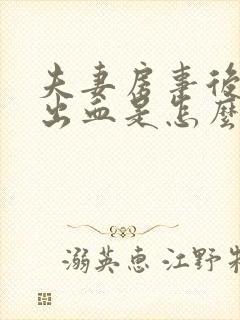 夫妻房事後
出血是怎麼
溺英惠 江野